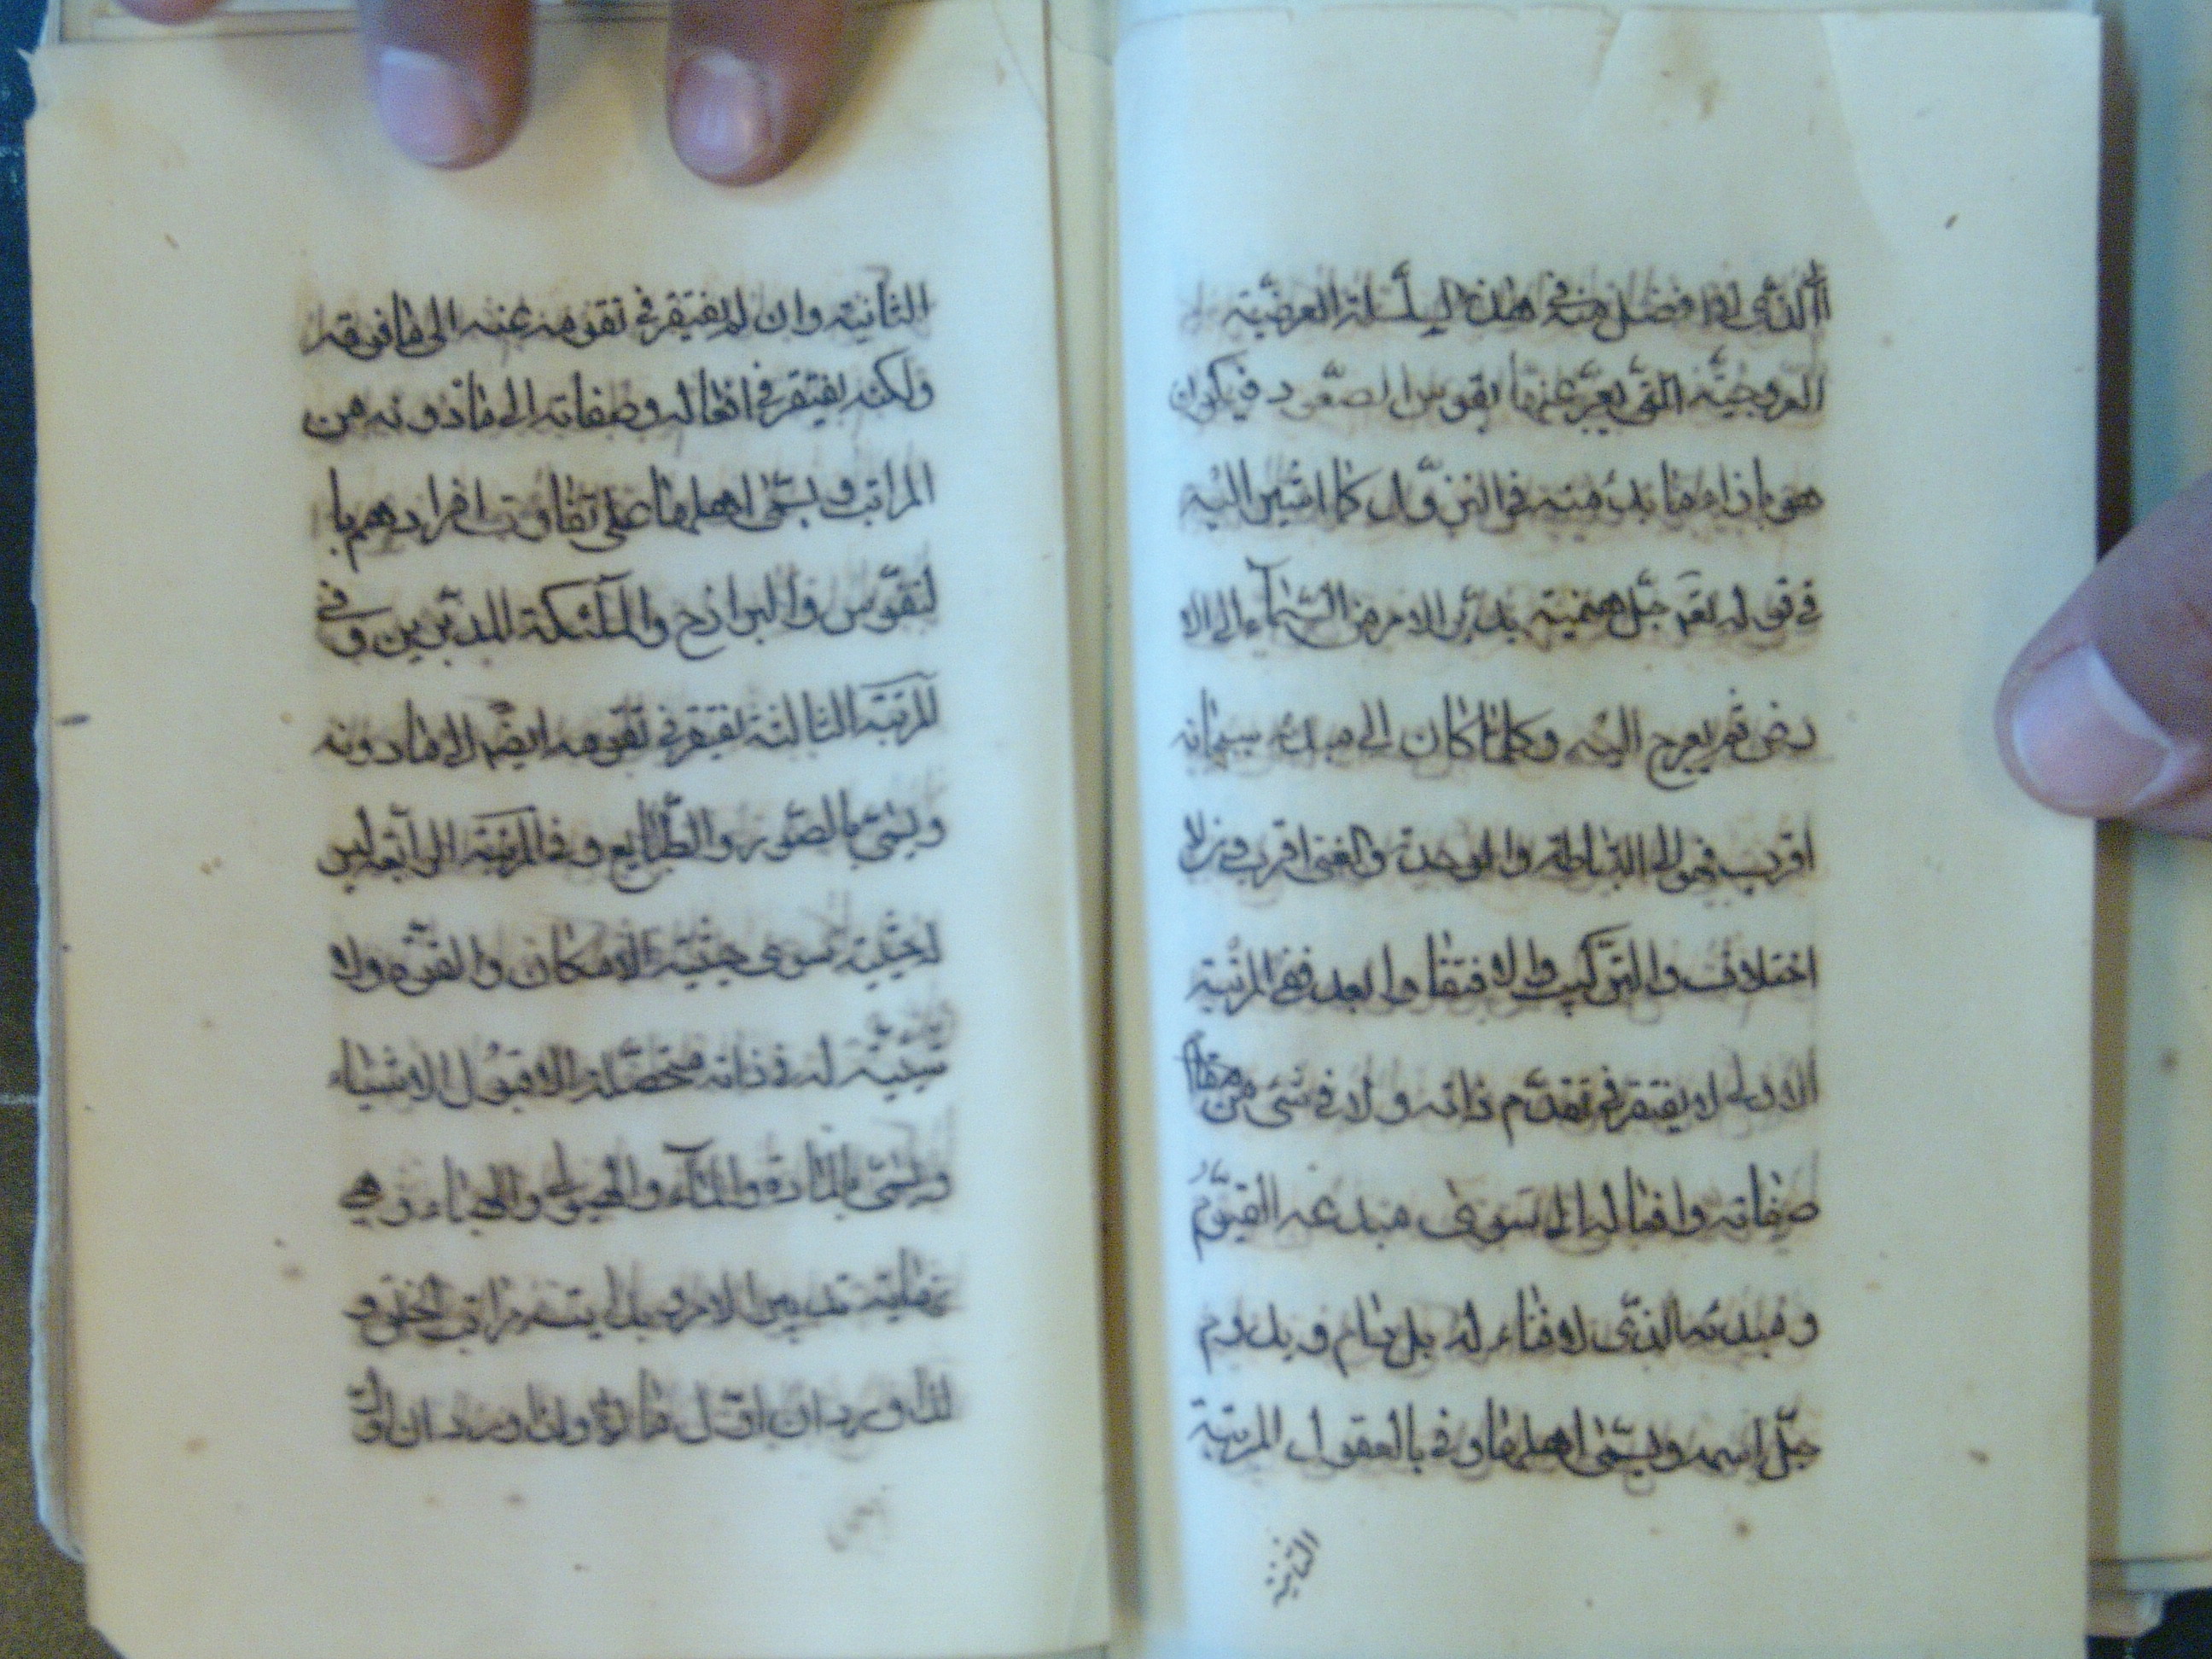 الذى لا افضل منه فى هذه السلسلة العرضية
العروجية التى يعبر عنها بقوس الصعود فيكون
هو باذاء ما بدء منه فى النزول كما اشير اليه
فى قوله تعم جل هيمنته يدبر الامر من السماء الى الا
رض ثم يعرج اليه وكلما كان الى مبدئه سبحانه
اقرب فهو الى البساطة والوحدة والغنى اقرب و من الا
اختلاف والتركيب والافتقا وابعد ففى المرتبة
الاولى لا يفتقر فى تقدم ذاته ولا فى شئ من
صفاته وافعاله الى سوى مبدعه القيوم
و مبدئه الذى لا فناء له بل هام و يدوم
جل اسمه ويسمى اهلها فى بالعقول المرتبة
الثانية
الثانية وان لم يفتقر فى تقومه عنه الى ما فوقه
ولكنه يفتقر فى افعاله وصفاته الى ما دونه من
المراتب ويسمى اهلها على تفاوت افرادهم با
لنفوس والبرازخ والملئكة المدبرين وفى
المرتبة الثالثة يفتقر فى تقومه ايضا الى ما دونه
ويسمى بالصور والطبايع وفى المرتبة الرابعة ليس
له حيثية سوى حيثية الامكان والقوة ولا
شيئية له فى ذاته متحصلة الا قبول الاشياء
ويسمى بالمادة والماء والهيولى والهباء وهى
نهاية تدبير الامر وبداية مراتب الخلق و
لذا ورد ان اول ما وان